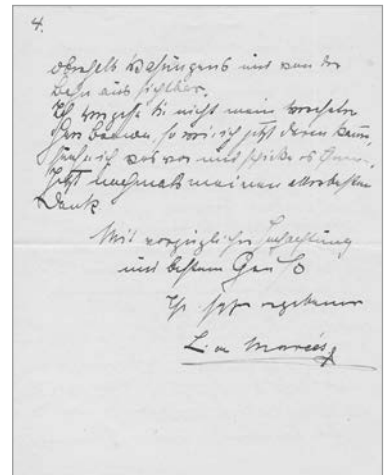 4.
oberhalb Wasungens und von der
Bahn aus sichtbar.
Ich vergesse Sie nicht mein verehrter
Herr Baron, so wie ich jetzt daran kann,
suche ich was vor und schicke es Ihnen.
Jetzt nochmals meinen allerbesten
Dank.
Mit vorzüglicher Hochachtung
und bestem Gruß
Ihr sehr ergebener
L. v. Marées